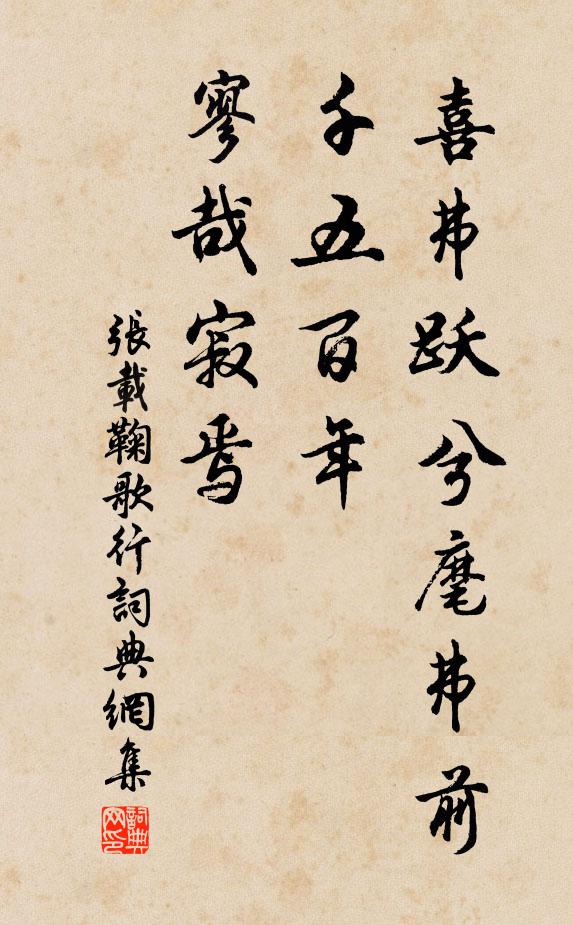 喜弗跃兮麾弗前
千五百年
寥哉寂焉
張載鞠歌行詞典網集
詞典网印